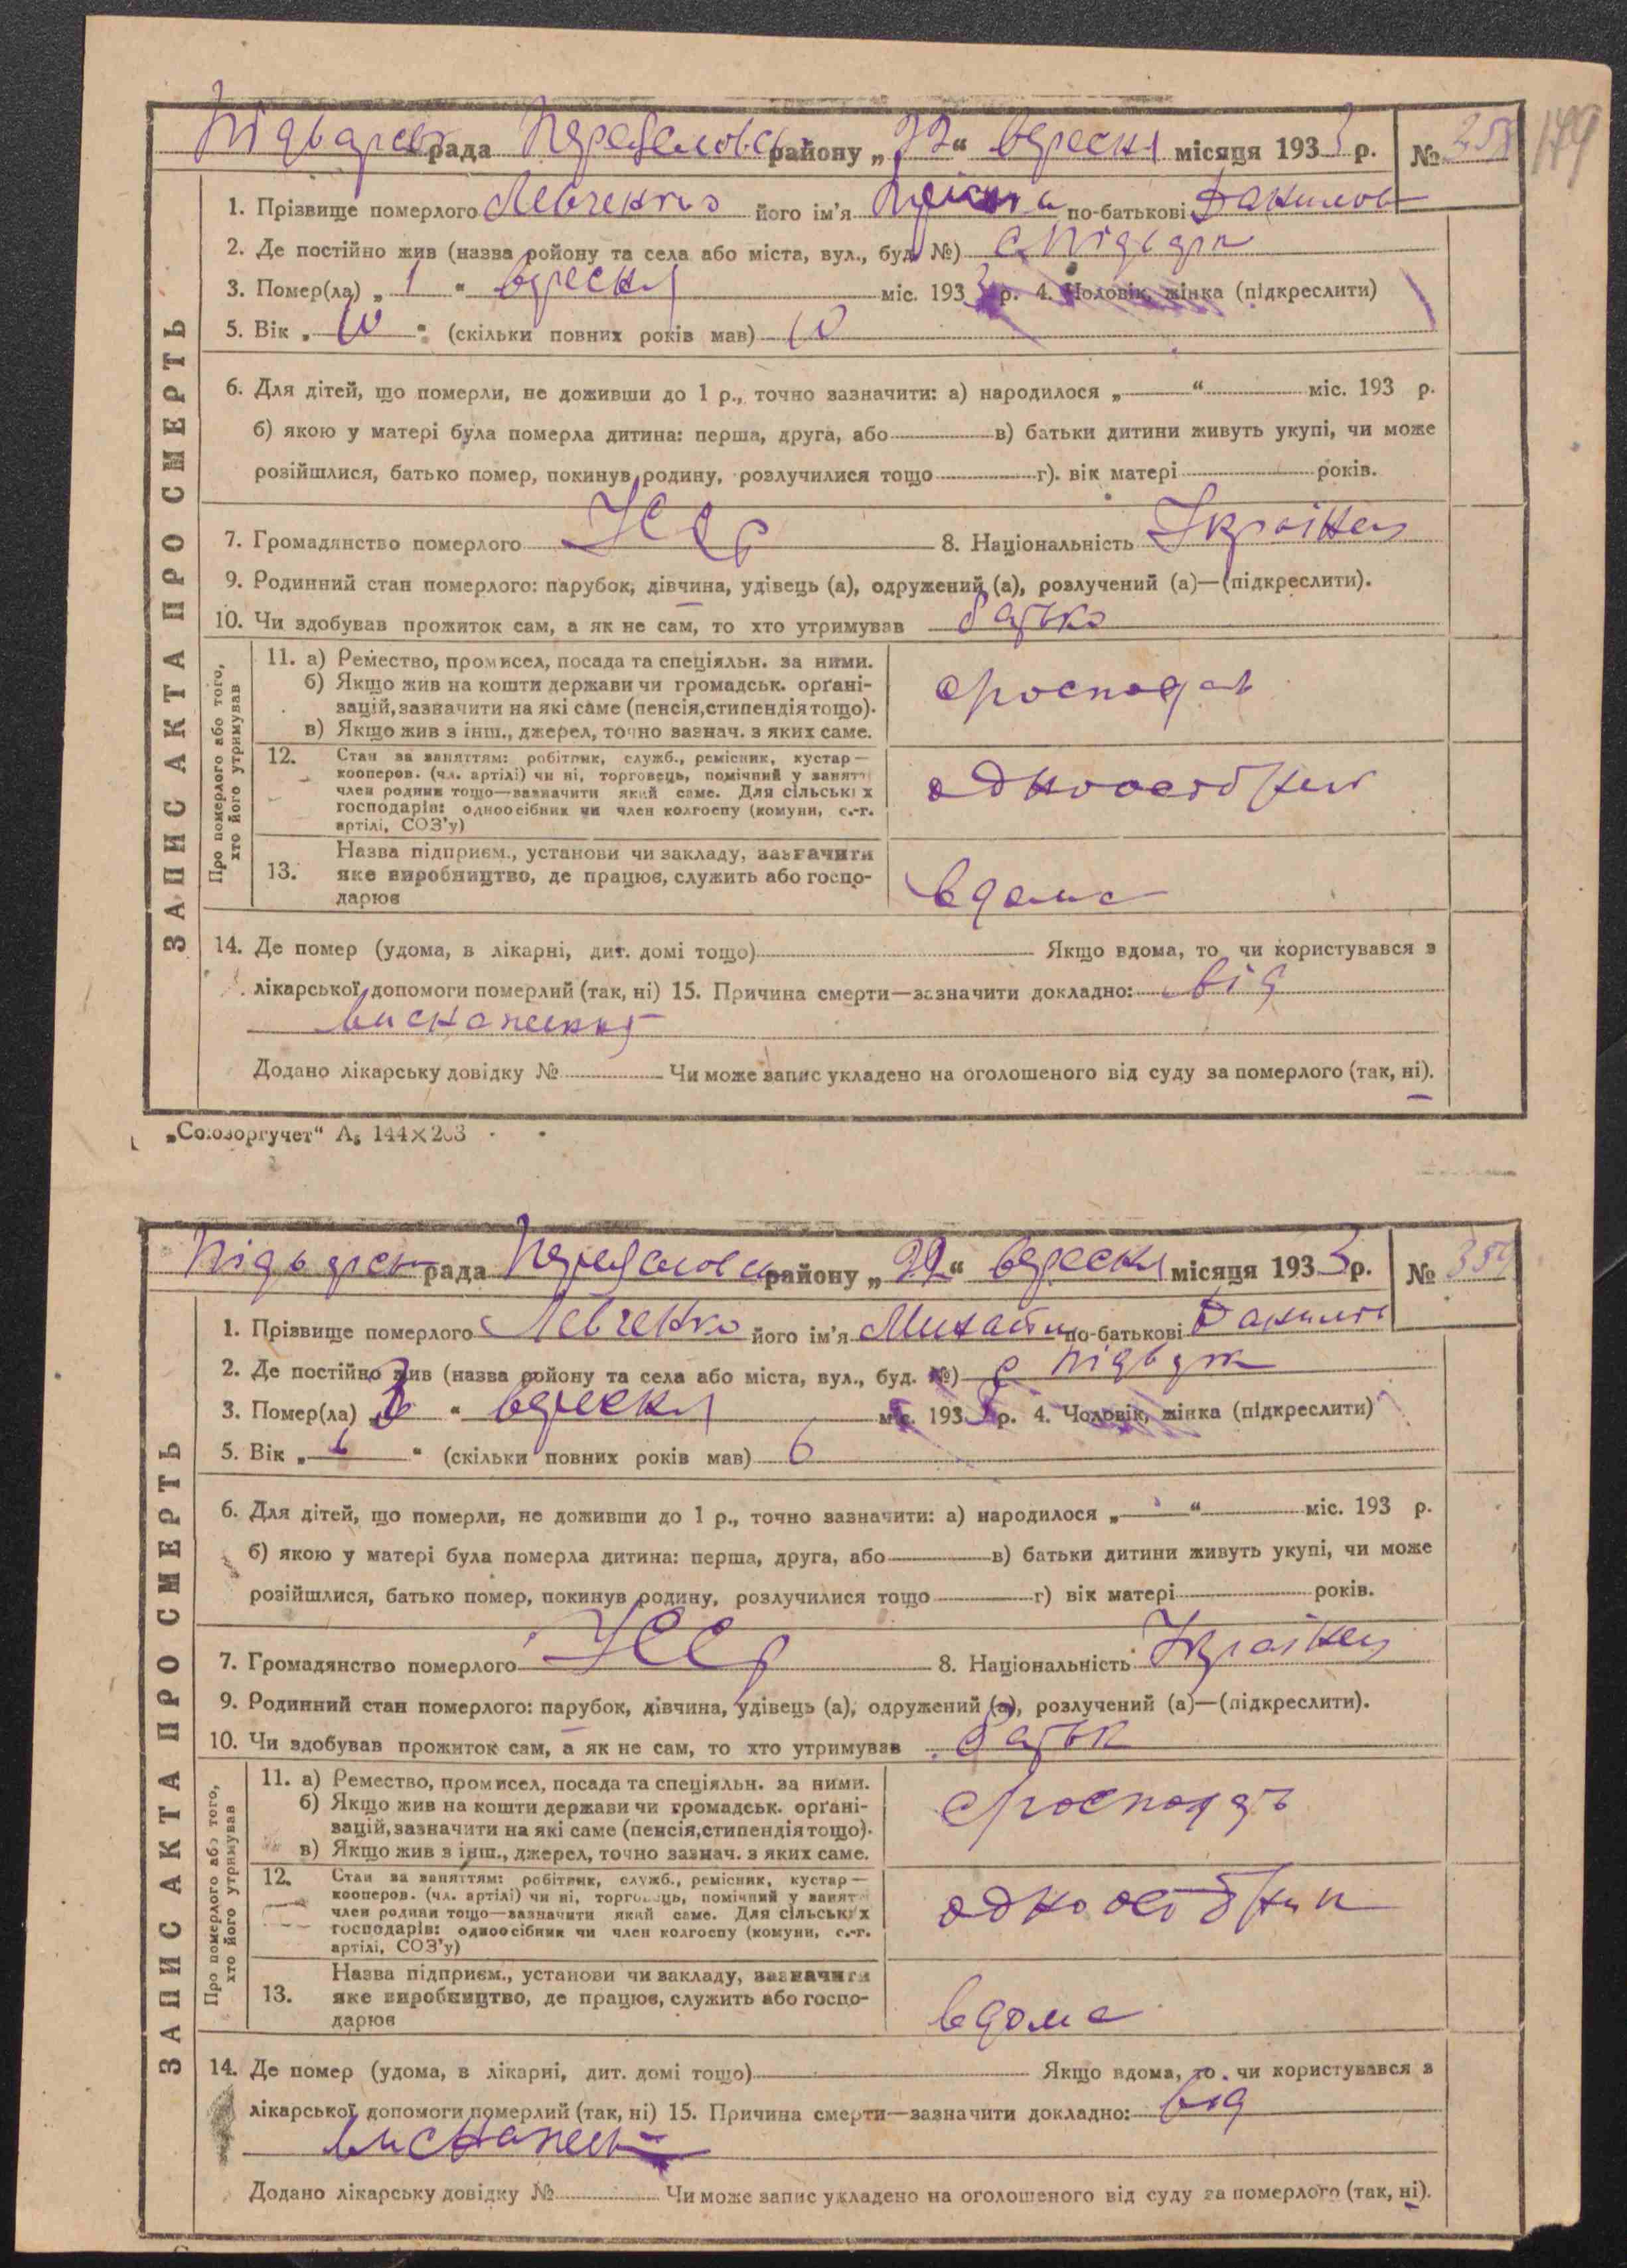 рада району „22“ вересня місяця 1933 р. № 358 179
1. Прізвище померлого Левченко його ім'я по-батькові Данилов
2. Де постійно жив (назва ройону та села або міста, вул., буд. №) с Підвар
3. Помер(ла) „1“ вересня міс. 1933 р. 4. Чоловік, жінка (підкреслити)
5. Вік „10“ (скільки повних років мав) 10
6. Для дітей, що померли, не доживши до 1 р., точно зазначити: а) народилося „ “ міс. 193 р.
б) якою у матері була померла дитина: перша, друга, або в) батьки дитини живуть укупі, чи може
розійшлися, батько помер, покинув родину, розлучилися тощо г). вік матері років.
7. Громадянство померлого УССР 8. Національність Україн
9. Родинний стан померлого: парубок, дівчина, удівець (а), одружений (а), розлучений (а)—(підкреслити).
10. Чи здобував прожиток сам, а як не сам, то хто утримував батько
ЗАПИС АКТА ПРО СМЕРТЬ
Про померлого або того, хто його утримував
11. а) Ремество, промисел, посада та спеціяльн. за ними.
б) Якщо жив на кошти держави чи громадськ. орґані-
зацій, зазначити на які саме (пенсія, стипендія тощо).
в) Якщо жив з інш., джерел, точно зазнач. з яких саме.
12. Стан за заняттям: робітник, служб., ремісник, кустар—
кооперов. (чл. артілі) чи ні, торговець, помічний у занятт
член родини тощо—зазначити який саме. Для сільських
господарів: одноосібник чи член колгоспу (комуни, с.-г.
артілі, СОЗ'у)
одноосібник
13. Назва підприєм., установи чи закладу, зазначити
яке виробництво, де працює, служить або госпо-
дарює
вдома
14. Де помер (удома, в лікарні, дит. домі тощо) Якщо вдома, то чи користувався з
лікарської допомоги померлий (так, ні) 15. Причина смерти—зазначити докладно: від
виснаження
Додано лікарську довідку № Чи може запис укладено на оголошеного від суду за померлого (так, ні).
„Союзоргучет“ А₅ 144×203
рада району „22“ вересня місяця 1933 р. № 359
1. Прізвище померлого Левченко його ім'я Михайло по-батькові Данилов
2. Де постійно жив (назва ройону та села або міста, вул., буд. №) с Підвар
3. Помер(ла) „ “ вересня міс. 1933 р. 4. Чоловік, жінка (підкреслити)
5. Вік „6“ (скільки повних років мав) 6
6. Для дітей, що померли, не доживши до 1 р., точно зазначити: а) народилося „ “ міс. 193 р.
б) якою у матері була померла дитина: перша, друга, або в) батьки дитини живуть укупі, чи може
розійшлися, батько помер, покинув родину, розлучилися тощо г) вік матері років.
7. Громадянство померлого УССР 8. Національність Україн
9. Родинний стан померлого: парубок, дівчина, удівець (а), одружений (а), розлучений (а)—(підкреслити).
10. Чи здобував прожиток сам, а як не сам, то хто утримував батьк
ЗАПИС АКТА ПРО СМЕРТЬ
Про померлого або того, хто його утримував
11. а) Ремество, промисел, посада та спеціяльн. за ними.
б) Якщо жив на кошти держави чи громадськ. орґані-
зацій, зазначити на які саме (пенсія, стипендія тощо).
в) Якщо жив з інш., джерел, точно зазнач. з яких саме.
12. Стан за заняттям: робітник, служб., ремісник, кустар—
кооперов. (чл. артілі) чи ні, торговець, помічний у занят
член родини тощо—зазначити який саме. Для сільських
господарів: одноосібник чи член колгоспу (комуни, с.-г.
артілі, СОЗ'у)
одноосібник
13. Назва підприєм., установи чи закладу, зазначити
яке виробництво, де працює, служить або госпо-
дарює
вдома
14. Де помер (удома, в лікарні, дит. домі тощо) Якщо вдома, то чи користувався з
лікарської допомоги померлий (так, ні) 15. Причина смерти—зазначити докладно: від
виснажен
Додано лікарську довідку № Чи може запис укладено на оголошеного від суду за померлого (так, ні).